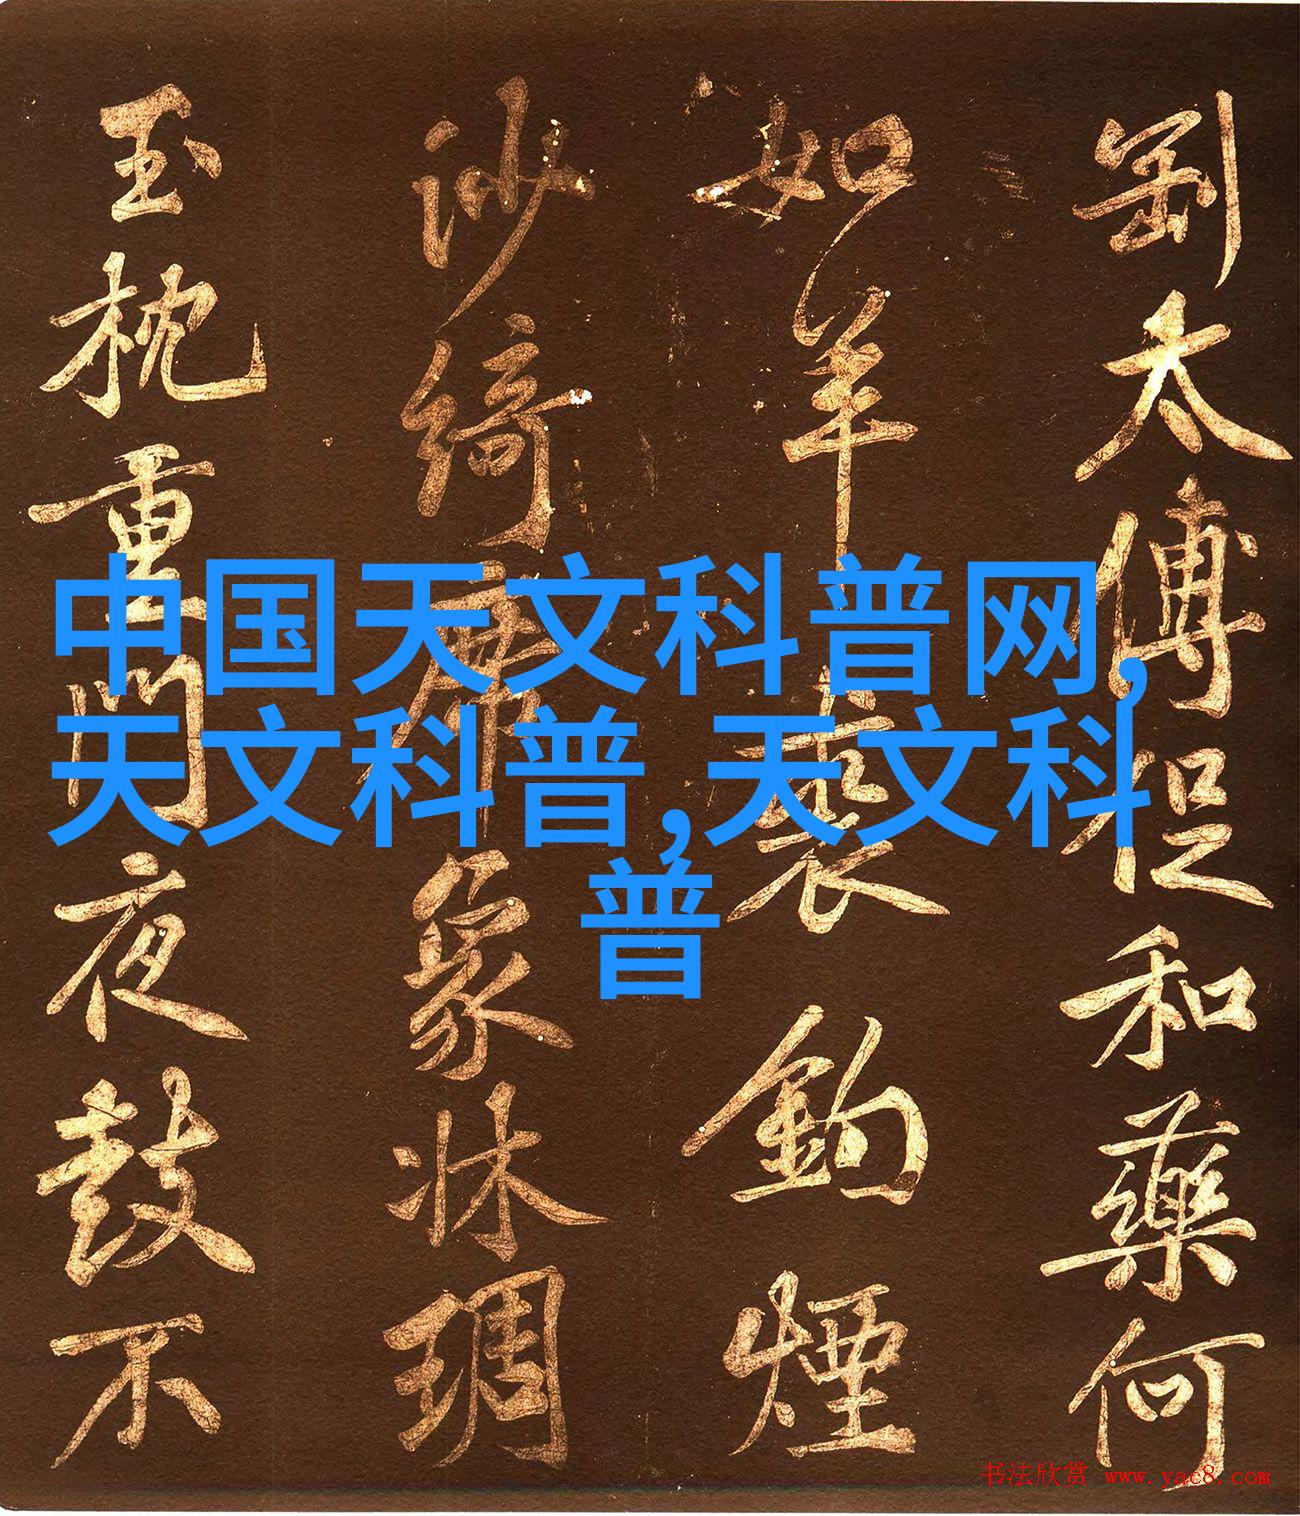 中国天文科普网,
天文科普,天文科
普
劉太傅促和藥何
如羊
裘釣煙
沙綺席象牀琱
玉枕重門夜鼓不
书法欣赏 www.yac8.com